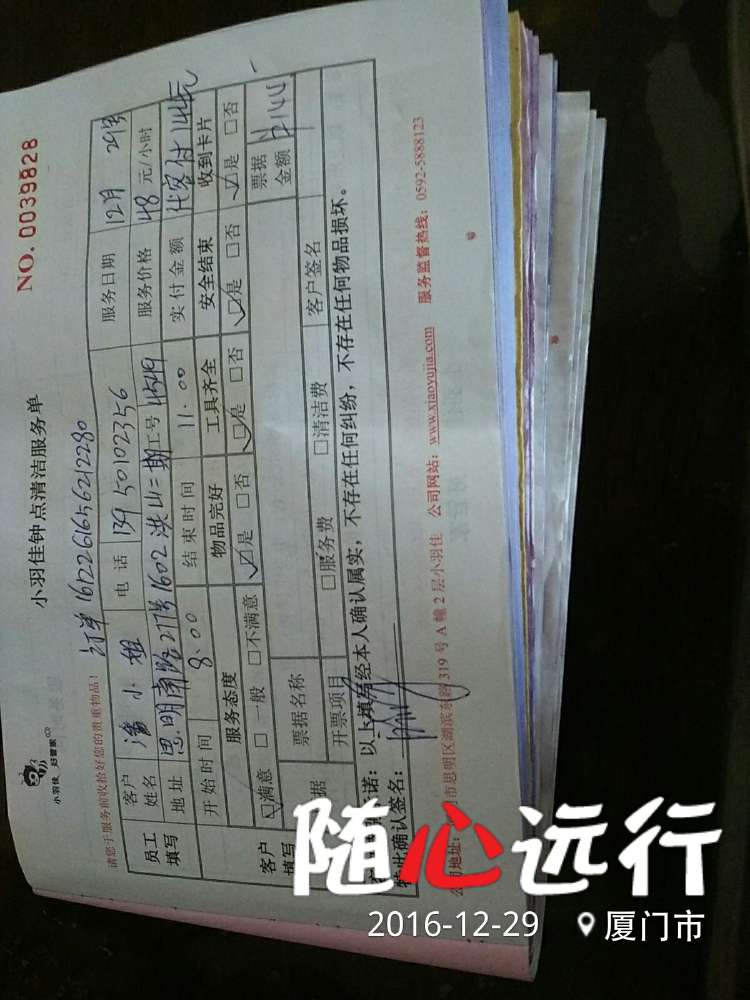 小羽佳 好管家
小羽佳钟点清洁服务单
NO. 0039828
请您于服务前收拾好您的贵重物品!
订单1612261656212280
员工填写
客户姓名 潘小姐 电话 13950102356 服务日期 12月29号
地址 思明南路217号1602洪山二期 工号 4549 服务价格 48元/小时
开始时间 8:00 结束时间 11:00 实付金额 代客付144元
服务态度 物品完好 工具齐全 安全结束 收到卡片
☑满意 □一般 □不满意 ☑是 □否 ☑是 □否 ☑是 □否 ☑是 □否
客户填写
票据名称 票据金额 144
开票项目 □服务费 □清洁费 客户签名
以上填写经本人确认属实,不存在任何纠纷,不存在任何物品损坏。
特此确认签名:
公司地址: 市思明区湖滨东路319号A幢2层小羽佳 公司网站:www.xiaoyujia.com 服务监督热线:0592-5888123
随心远行
2016-12-29 厦门市